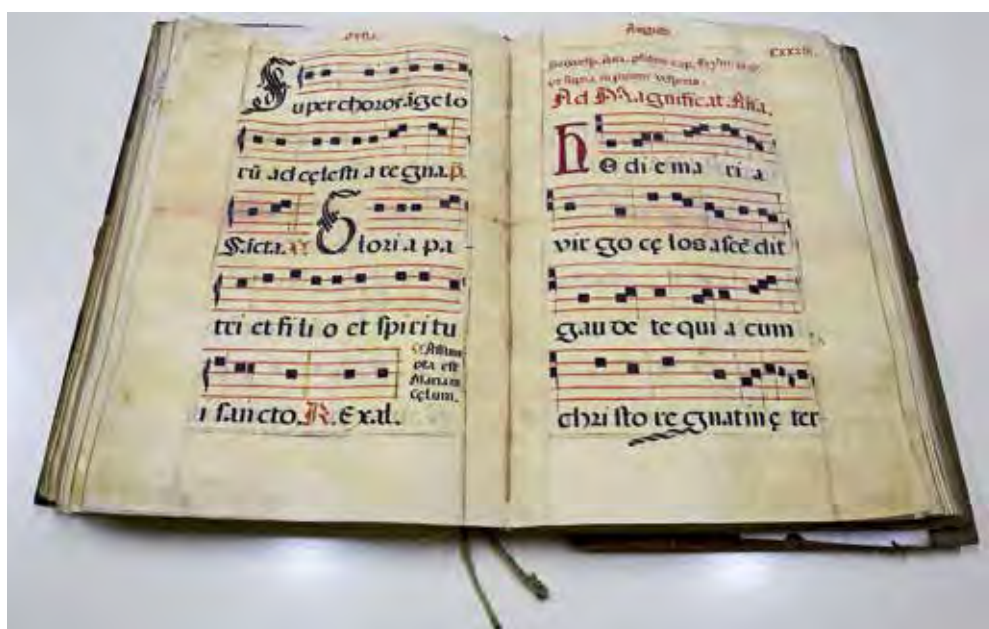 Super choros ãgelo
rũ ad cęlestia regna. p.
S.icta. Gloria pa
tri et filio et spiritu
i sancto. R. Exal.
Mariam
cęlum.
Augusti.
CXXXIII.
Ad Magnificat. Aña.
Hodie maria
virgo cęlos ascẽdit
gaudete quia cum
christo regnat in ęter